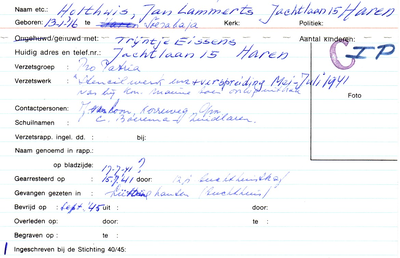 Naam etc.: Holthuis, Jan Lammerts Jachtlaan 15 Haren
Geboren: 13-1-'16 te Soerabaja Kerk: Politiek:
Ongehuwd/gehuwd met: Trijntje Eissens Aantal kinderen:
Huidig adres en telef.nr.: Jachtlaan 15 Haren
GIP
Verzetsgroep : Pro Patria
Verzetswerk : Stencilwerk en verspreiding Mei-Juli 1941
Foto
Contactpersonen: Korreweg, Gron
Schuilnamen : C. Boerema - Zuidlaren
Verzetsrapp. ingel. dd. : bij:
Naam genoemd in rapp.:
op bladzijde: 17.7.41 ?
Gearresteerd op : 15.7.41 door:
Gevangen gezeten in: (tuchthuis)
Bevrijd op : Sept. '45 uit : door:
Overleden op : door: te :
Begraven op : te :
Ingeschreven bij de Stichting 40/45: